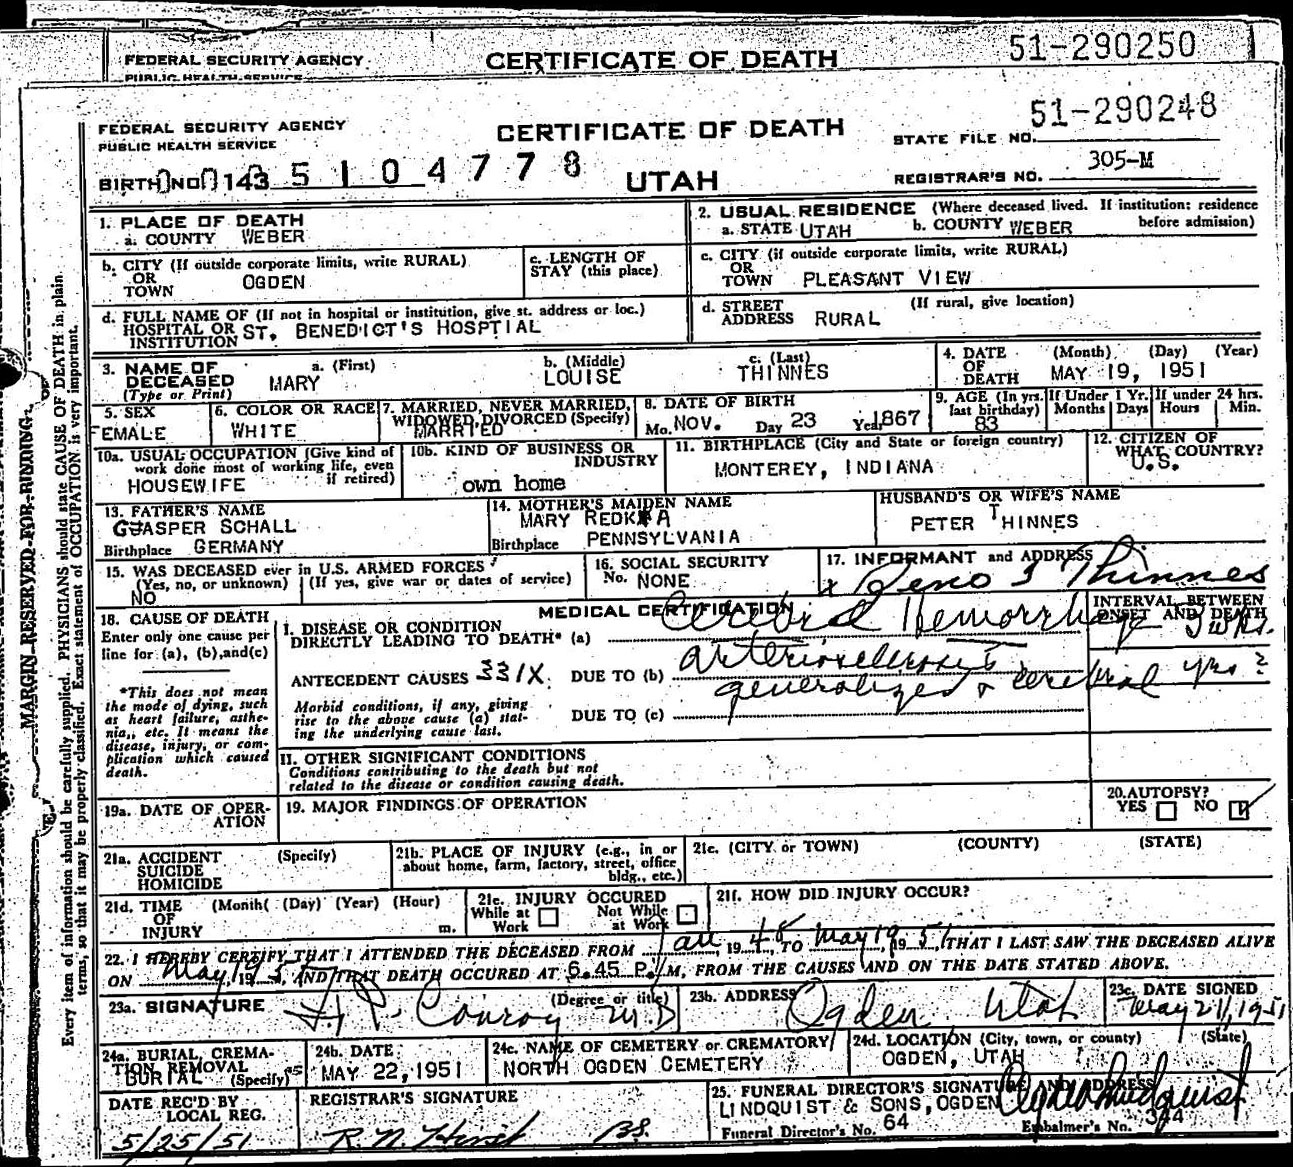 FEDERAL SECURITY AGENCY CERTIFICATE OF DEATH 51-290250
PUBLIC HEALTH SERVICE
51-290248
FEDERAL SECURITY AGENCY CERTIFICATE OF DEATH STATE FILE NO.
PUBLIC HEALTH SERVICE 305-M
BIRTH NO. 143 5 1 0 4 7 7 8 UTAH REGISTRAR'S NO.
1. PLACE OF DEATH
a. COUNTY WEBER
2. USUAL RESIDENCE (Where deceased lived. If institution: residence before admission)
a. STATE UTAH b. COUNTY WEBER
b. CITY (If outside corporate limits, write RURAL)
OR
TOWN OGDEN
c. LENGTH OF
STAY (this place)
c. CITY (if outside corporate limits, write RURAL)
OR
TOWN PLEASANT VIEW
d. FULL NAME OF (If not in hospital or institution, give st. address or loc.)
HOSPITAL OR
INSTITUTION ST. BENEDICT'S HOSPTIAL
d. STREET (If rural, give location)
ADDRESS RURAL
3. NAME OF a. (First) b. (Middle) c. (Last)
DECEASED MARY LOUISE THINNES
(Type or Print)
4. DATE (Month) (Day) (Year)
OF
DEATH MAY 19, 1951
5. SEX
FEMALE
6. COLOR OR RACE
WHITE
7. MARRIED, NEVER MARRIED,
WIDOWED, DIVORCED (Specify)
MARRIED
8. DATE OF BIRTH
Mo. NOV. Day 23 Year 1867
9. AGE (In yrs. last birthday)
83
If Under 1 Yr.
Months Days
If under 24 hrs.
Hours Min.
10a. USUAL OCCUPATION (Give kind of
work done most of working life, even
if retired)
HOUSEWIFE
10b. KIND OF BUSINESS OR
INDUSTRY
own home
11. BIRTHPLACE (City and State or foreign country)
MONTEREY, INDIANA
12. CITIZEN OF
WHAT COUNTRY?
U.S.
13. FATHER'S NAME
ASPER SCHALL
Birthplace GERMANY
14. MOTHER'S MAIDEN NAME
MARY
Birthplace PENNSYLVANIA
HUSBAND'S OR WIFE'S NAME
PETER THINNES
15. WAS DECEASED ever in U.S. ARMED FORCES?
(Yes, no, or unknown) (If yes, give war or dates of service)
NO
16. SOCIAL SECURITY
No. NONE
17. INFORMANT and ADDRESS
x Thinnes
18. CAUSE OF DEATH
Enter only one cause per
line for (a), (b), and (c)
*This does not mean
the mode of dying, such
as heart failure, asthe-
nia, etc. It means the
disease, injury, or com-
plication which caused
death.
MEDICAL CERTIFICATION
INTERVAL BETWEEN
ONSET AND DEATH
I. DISEASE OR CONDITION
DIRECTLY LEADING TO DEATH* (a) Cerebral Hemorrhage 3 wks.
ANTECEDENT CAUSES 331X DUE TO (b) arteriosclerosis
generalized & cerebral yrs ?
Morbid conditions, if any, giving
rise to the above cause (a) stat-
ing the underlying cause last.
DUE TO (c)
II. OTHER SIGNIFICANT CONDITIONS
Conditions contributing to the death but not
related to the disease or condition causing death.
19a. DATE OF OPER-
ATION
19. MAJOR FINDINGS OF OPERATION
20. AUTOPSY?
YES NO
21a. ACCIDENT (Specify)
SUICIDE
HOMICIDE
21b. PLACE OF INJURY (e.g., in or
about home, farm, factory, street, office
bldg., etc.)
21c. (CITY or TOWN) (COUNTY) (STATE)
21d. TIME (Month) (Day) (Year) (Hour)
OF
INJURY m.
21e. INJURY OCCURED
While at Work Not While at Work
21f. HOW DID INJURY OCCUR?
22. I HEREBY CERTIFY THAT I ATTENDED THE DECEASED FROM Jan 1948, TO May 19, 1951, THAT I LAST SAW THE DECEASED ALIVE
ON May 19, 1951, AND THAT DEATH OCCURED AT 6.45 P. M., FROM THE CAUSES AND ON THE DATE STATED ABOVE.
23a. SIGNATURE (Degree or title)
Conroy M.D
23b. ADDRESS
Ogden Utah
23c. DATE SIGNED
May 21, 1951
24a. BURIAL, CREMA-
TION, REMOVAL
(Specify)
BURIAL
24b. DATE
MAY 22, 1951
24c. NAME OF CEMETERY or CREMATORY
NORTH OGDEN CEMETERY
24d. LOCATION (City, town, or county) (State)
OGDEN, UTAH
DATE REC'D BY
LOCAL REG.
5/25/51
REGISTRAR'S SIGNATURE
R. N.
25. FUNERAL DIRECTOR'S SIGNATURE AND ADDRESS
LINDQUIST & SONS, OGDEN
Funeral Director's No. 64 Embalmer's No. 344
MARGIN RESERVED FOR BINDING
Every item of information should be carefully supplied. PHYSICIANS should state CAUSE OF DEATH in plain
terms, so that it may be properly classified. Exact statement of OCCUPATION is very important.